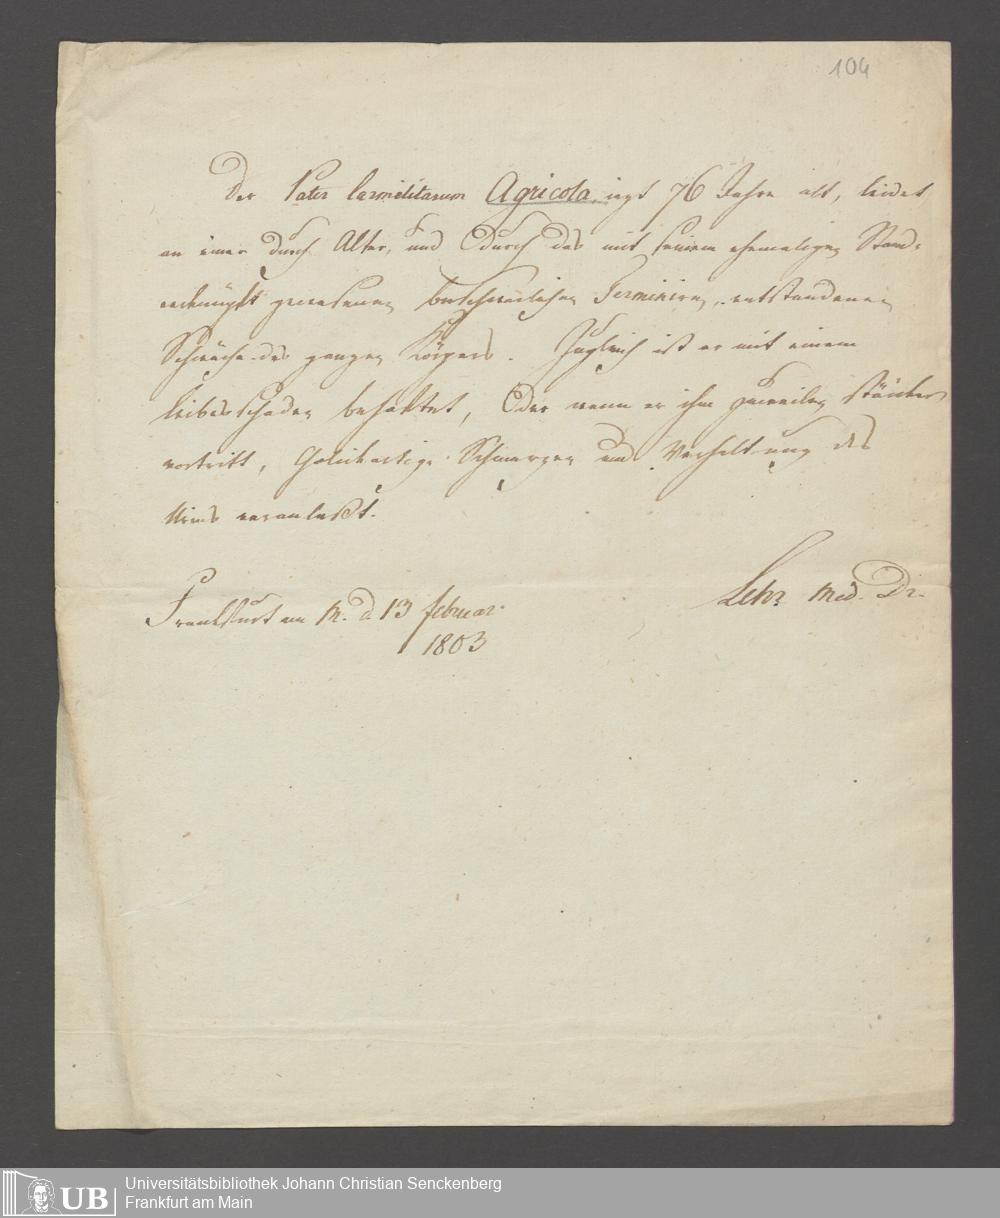 104
Der Pater Carmelitarum Agricola, iezt 76 Jahre alt, leidet
an einer durch Alter, und durch das mit seinem ehemaligen Stand
verknüpft gewesenen beschwerlichen Terminiren, entstandenen
Schwäche des ganzen Körpers. Zugleich ist er mit einem
Leibesschaden behaftet, der wenn er ihm zuweilen stärker
vortritt, Schmerzen und Verhaltung des
Urins veranlaßt.
Lehr Med. Dr.
Frankfurt am M. d 13 februar.
1803
UB
Universitätsbibliothek Johann Christian Senckenberg
Frankfurt am Main